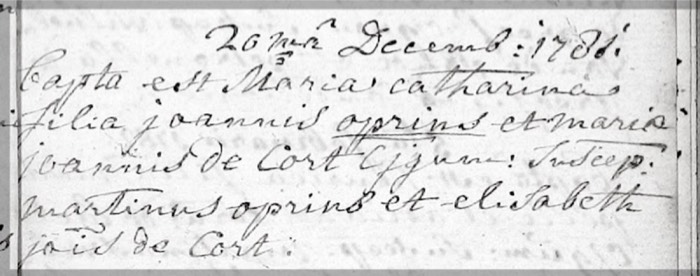 20mã Decemb: 1781.
bapta est Maria catharina
filia joannis oprins et maria
joannis de Cort Cjgum: Suscep:
martinus oprins et elisabeth
jois de Cort.